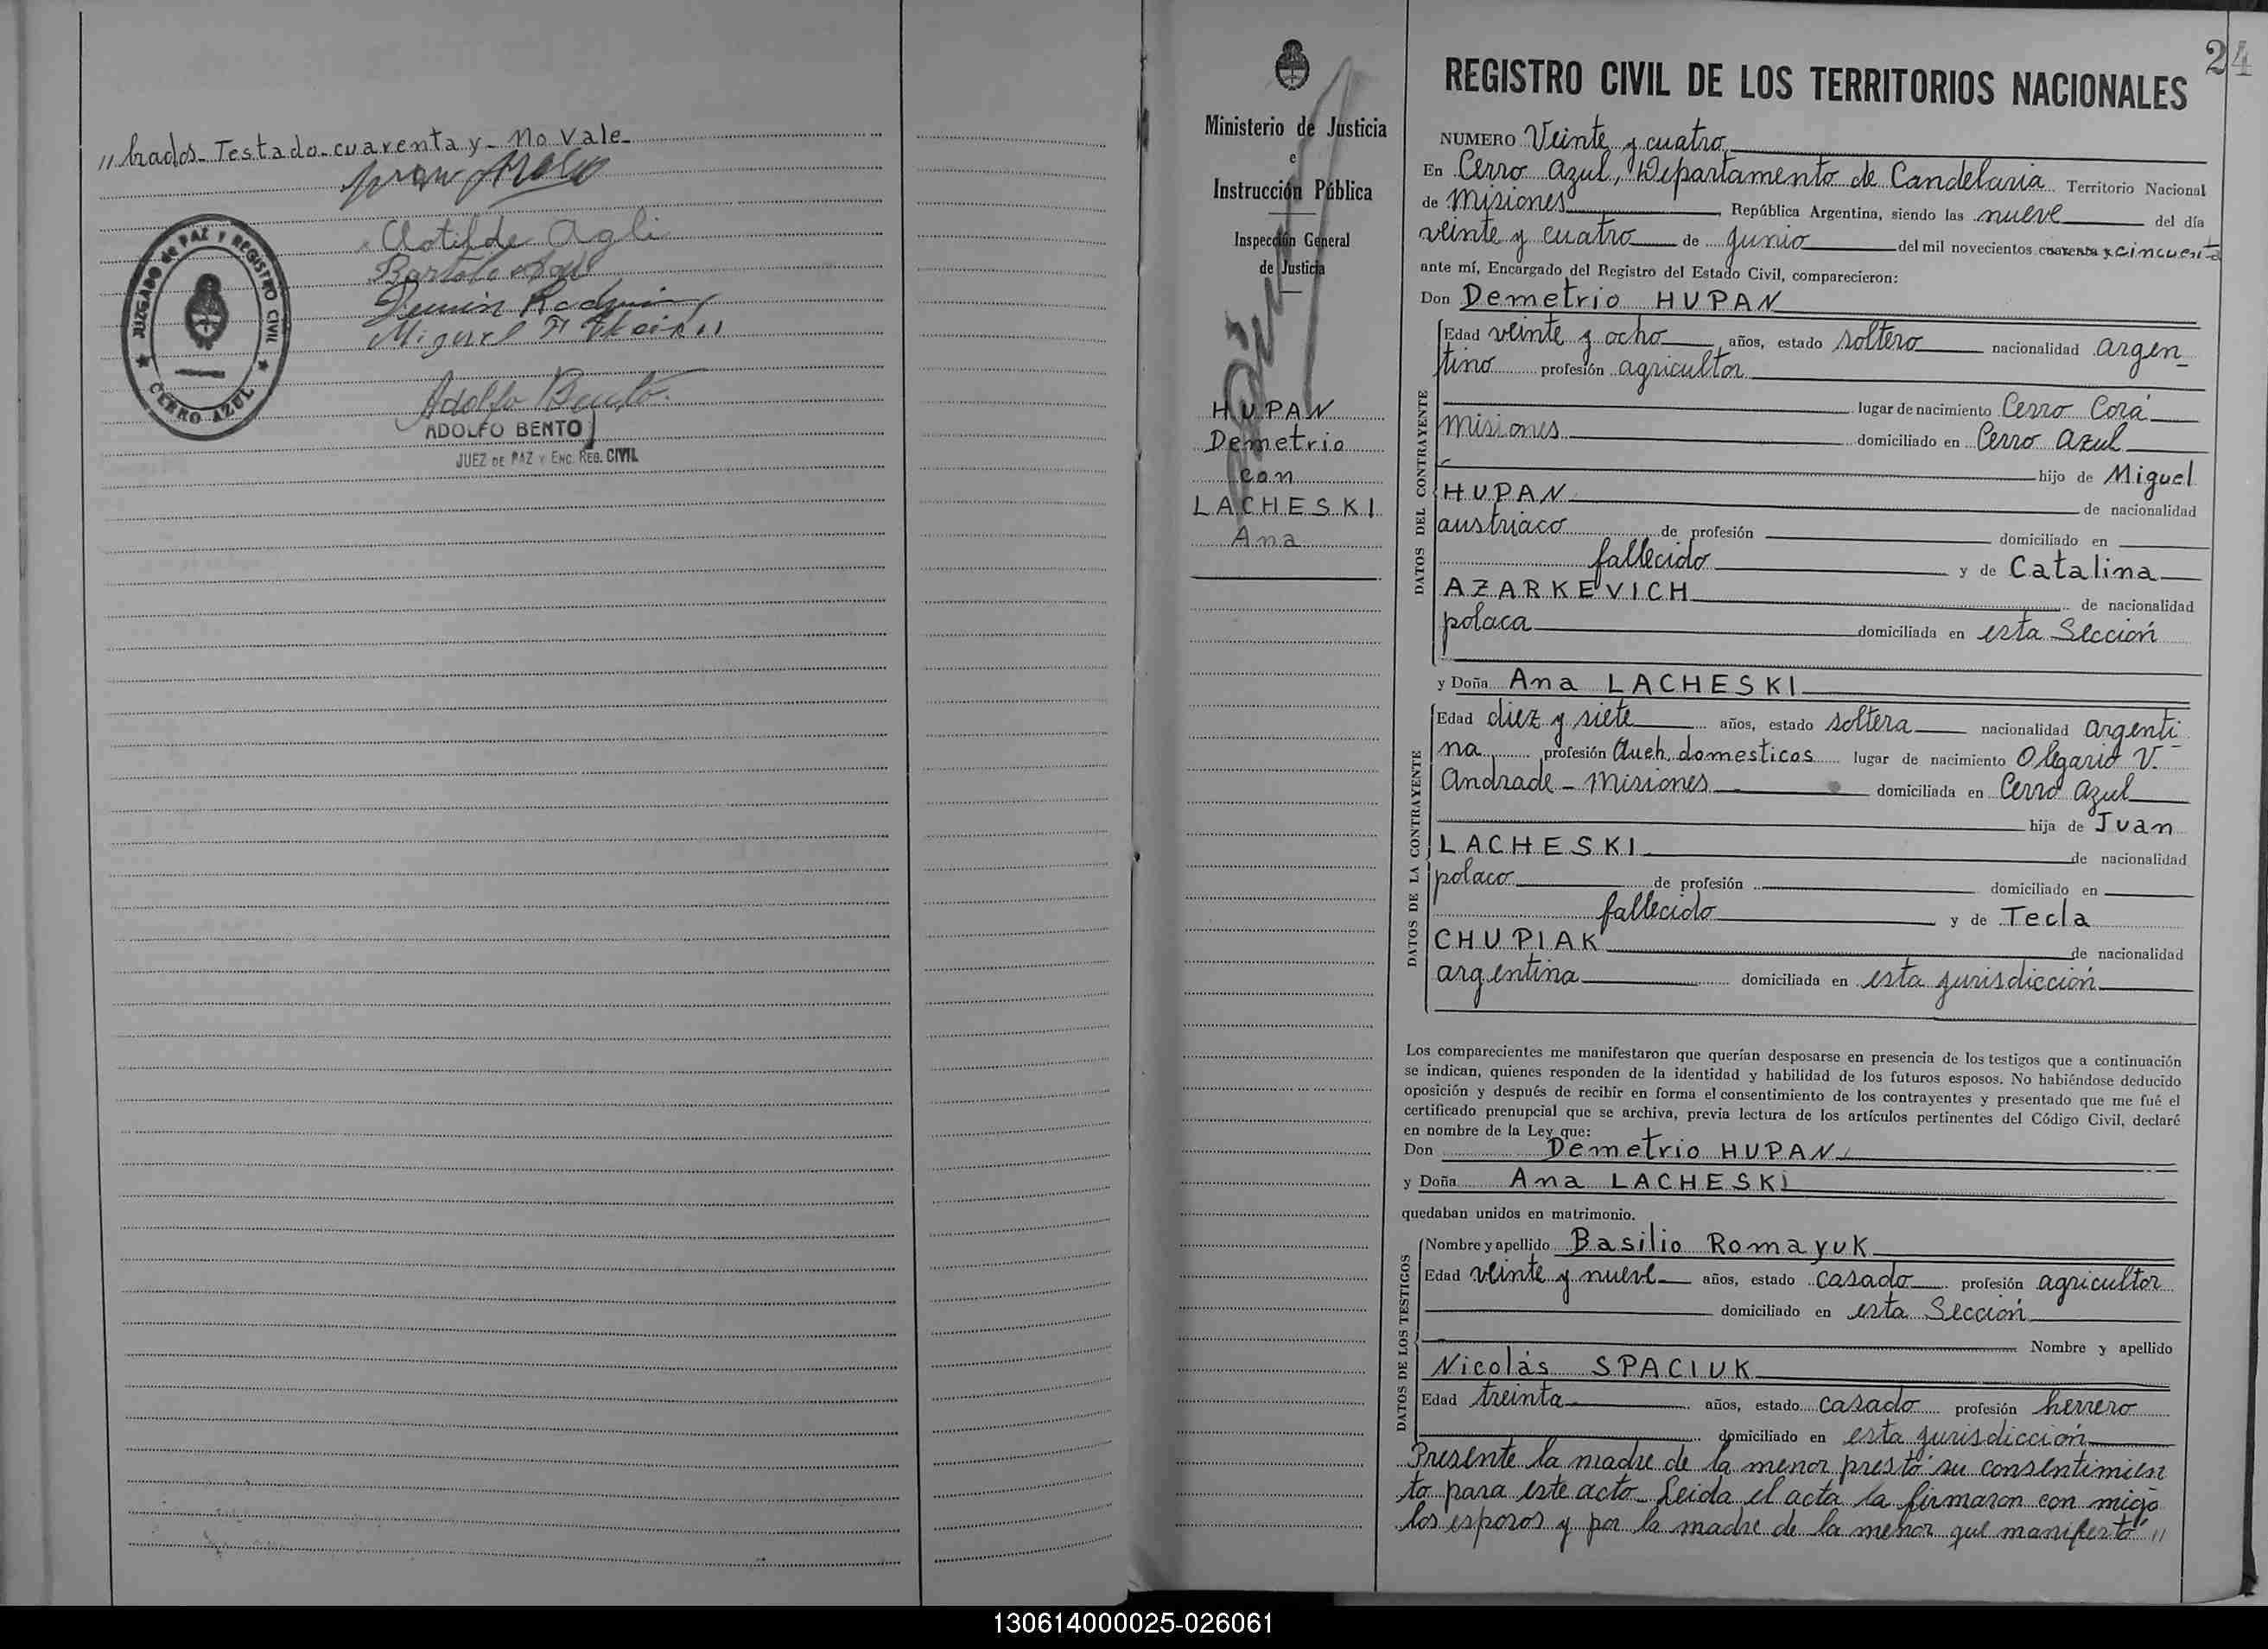 // brados- Testado- cuarenta y- No Vale-
Clotilde Agli
JUZGADO de PAZ Y REGISTRO CIVIL
CERRO AZUL
Adolfo Bento
ADOLFO BENTO
JUEZ DE PAZ Y ENC. REG. CIVIL
24
Ministerio de Justicia
e
Instrucción Pública
Inspección General
de Justicia
HUPAN
Demetrio
con
LACHESKI
Ana
REGISTRO CIVIL DE LOS TERRITORIOS NACIONALES
NUMERO Veinte y cuatro
En Cerro Azul, Departamento de Candelaria Territorio Nacional
de Misiones, República Argentina, siendo las nueve del día
veinte y cuatro de Junio del mil novecientos cuarenta y cincuenta
ante mí, Encargado del Registro del Estado Civil, comparecieron:
Don Demetrio HUPAN
DATOS DEL CONTRAYENTE
Edad veinte y ocho años, estado soltero nacionalidad argen-
tino profesión agricultor
lugar de nacimiento Cerro Corá
Misiones domiciliado en Cerro Azul
hijo de Miguel
HUPAN de nacionalidad
austriaco de profesión domiciliado en
fallecido y de Catalina
AZARKEVICH de nacionalidad
polaca domiciliada en esta Sección
y Doña Ana LACHESKI
DATOS DE LA CONTRAYENTE
Edad diez y siete años, estado soltera nacionalidad argenti-
na profesión Queh. domesticos lugar de nacimiento Olegario V.
Andrade - Misiones domiciliada en Cerro Azul
hija de Juan
LACHESKI de nacionalidad
polaco de profesión domiciliado en
fallecido y de Tecla
CHUPIAK de nacionalidad
argentina domiciliada en esta jurisdicción
Los comparecientes me manifestaron que querían desposarse en presencia de los testigos que a continuación
se indican, quienes responden de la identidad y habilidad de los futuros esposos. No habiéndose deducido
oposición y después de recibir en forma el consentimiento de los contrayentes y presentado que me fué el
certificado prenupcial que se archiva, previa lectura de los artículos pertinentes del Código Civil, declaré
en nombre de la Ley que:
Don Demetrio HUPAN
y Doña Ana LACHESKI
quedaban unidos en matrimonio.
DATOS DE LOS TESTIGOS
Nombre y apellido Basilio Romayuk
Edad veinte y nueve años, estado casado profesión agricultor
domiciliado en esta Sección
Nombre y apellido
Nicolás SPACIUK
Edad treinta años, estado casado profesión herrero
domiciliado en esta jurisdicción
Presente la madre de la menor prestó su consentimien
to para este acto- Leida el acta la firmaron con migo
los esposos y por la madre de la menor que manifestó //
130614000025-026061